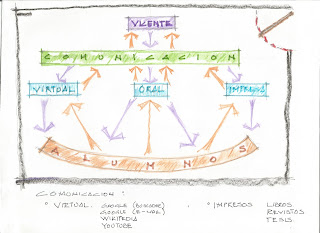 VICENTE
COMUNICACION
VIRTUAL ORAL IMPRESA
ALUMNOS
COMUNICACION :
° VIRTUAL. GOOGLE (BUSCADOR) ° IMPRESOS LIBROS
GOOGLE (E-MAIL) REVISTAS
WIKIPEDIA TESIS
YOUTUBE